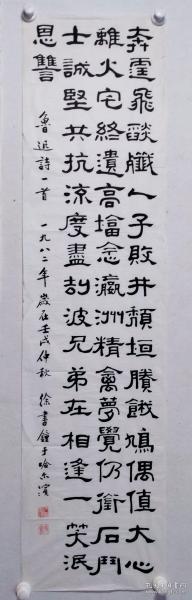 奔霆飛燄殲人子敗井頹垣賸餓鳩偶值大心
離火宅終遺高塔念瀛洲精禽夢覺仍銜石鬥
士誠堅共抗流度盡劫波兄弟在相逢一笑泯
恩讐
魯迅詩一首 一九八二年歲在壬戌仲秋 徐書鐘于哈尔濱